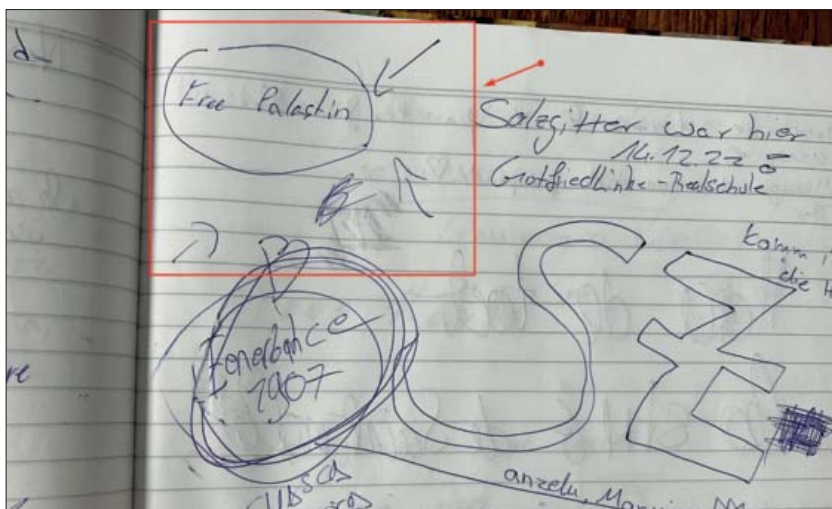 d-
Free Palastin
Salzgitter war hier
14.12.22
Gotfriedlinke-Realschule
komm i
die H
Fenerbahce
1907
re
SE
anzelu,